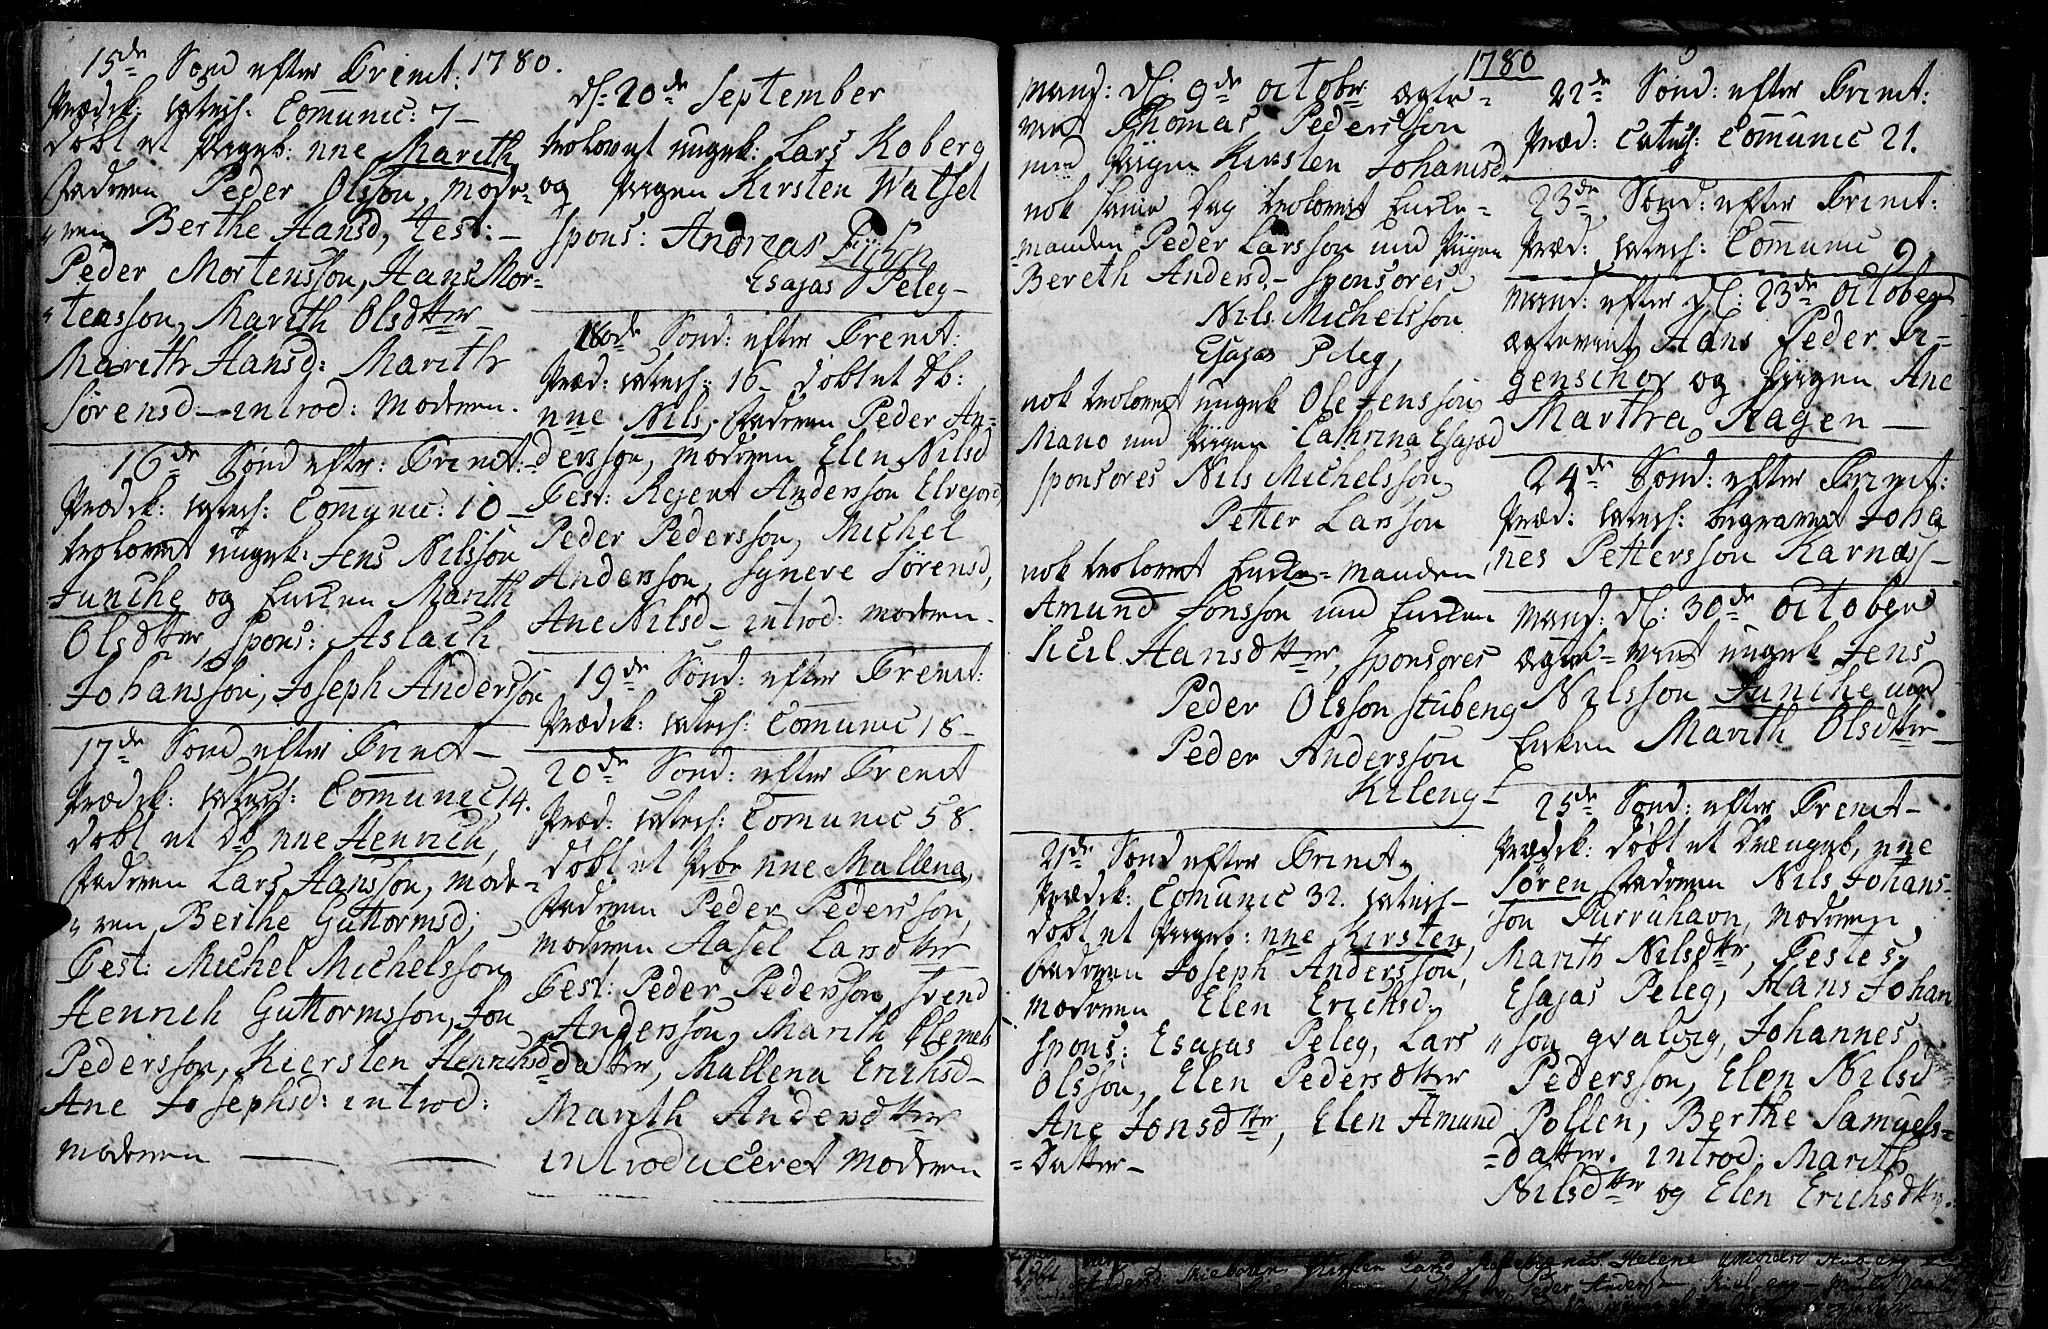 15de Sønd efter Trinit: 1780.
Prædik: catech: Comunic: 7 –
døbt et Pigeb: nne Marith
Faderen Peder Olsson, mode-
ren Berthe Hansd, test: –
Peder Mortensson, Hans Mor-
tensson, Marith Olsdtter
Marith Hansd: Marith
Sørensd – introd: moderen.
16de Sønd efter: Trinit: –
Prædik: catech: Comunic: 10 –
trolovet ungk: Jens Nilsson
Funche og Enken Marith
Olsdtter, spons: Aslach
Johansson, Joseph Andersson
17de Sønd efter Trinit –
Prædik: catech: Comunic 14.
døbt et db nne Henrich,
Faderen Lars Hansson, mode-
ren Berthe Guttormsd,
Test: Michel Michelsson
Henrich Guttormsson, Jon
Pedersson, Kiersten Henrichsd
Ane Josephsd: introd:
moderen
d: 20de September
trolovet ungk: Lars Koberg
og Pigen Kirsten Watsel
spons: Andreas
Esajas Peleg –
18de Sønd: efter Trenit:
Præd: catech: 16 – døbt et db:
nne Nils, Faderen Peder An-
dersson, moderen Elen Nilsd
Test: Rejent Andersson Elvejord
Peder Pedersson, Michel
Andersson, Synere Sørensd,
Ane Nilsd – introd: moderen –
19de Sønd: efter Trenit:
Prædik: catech: Comunic 18 –
20de Sønd: efter Trenit
Præd: catech: Comunic 58.
døbt et Pbr nne Mallena,
Faderen Peder Pedersson,
moderen Aasel Larsdtter
Test: Peder Pedersson, Svend
Andersson, Marith Clemets
datter, Mallena Erichsd –
Marith Andersdtter
introduceret moderen
1780
Mand: d: 9de october ægte-
viet Thomas Pedersson
med Pigen Kirsten Johansd
nok samme Dag trolovet Enke-
manden Peder Larsson med Pigen
Bereth Andersd – sponsores
Nils Michelsson
Esajas Peleg,
nok trolovet ungk Ole Jensson
Mano med Pigen Cathrina Esajæd
sponsores Nils Michelsson
Petter Larsson
nok trolovet Enke-manden
Amund Jonsson med Enken
Sicil Hansdtter, sponsores
Peder Olsson Stubeng
Peder Andersson
Kileng –
21de Sønd efter Trinit,
Prædik: Comunic 32. catech –
døbt et Pigeb: nne Kirsten,
Faderen Joseph Andersson,
moderen Elen Erichsd.
spons: Esajas Peleg, Lars
Olsson, Elen Pedersdtter
Ane Jonsdtter, Elen Amund
-Datter –
22de Sønd: efter Trinit:
Præd: Catech: Comunic 21.
23de Sønd: efter Trinit:
Præd: catech: Comunic 9.
Mand: efter d: 23de October
ægteviet Hans Peder
og Pigen Ane
Martha Hagen –
24de Sønd: efter Trinit:
Præd: catech: begravet Johan
nes Pettersson Karnæs –
Mand: d: 30de october
ægte-viet ungk Jens
Nilsson Funche med
Enken Marith Olsdtter
25de Sønd: efter Trenit –
Prædik: døbt et Drengeb, nne
Søren, Faderen Nils Johans-
son Purruhavn, moderen,
Marith Nilsdtr, Testes,
Esajas Peleg, Hans Johan
son Qvalvig, Johannes
Pedersson, Elen Nilsd
Pollen, Berthe Samuels-
-datter. introd: Marith
Nilsdtter og Elen Erichsdtr.